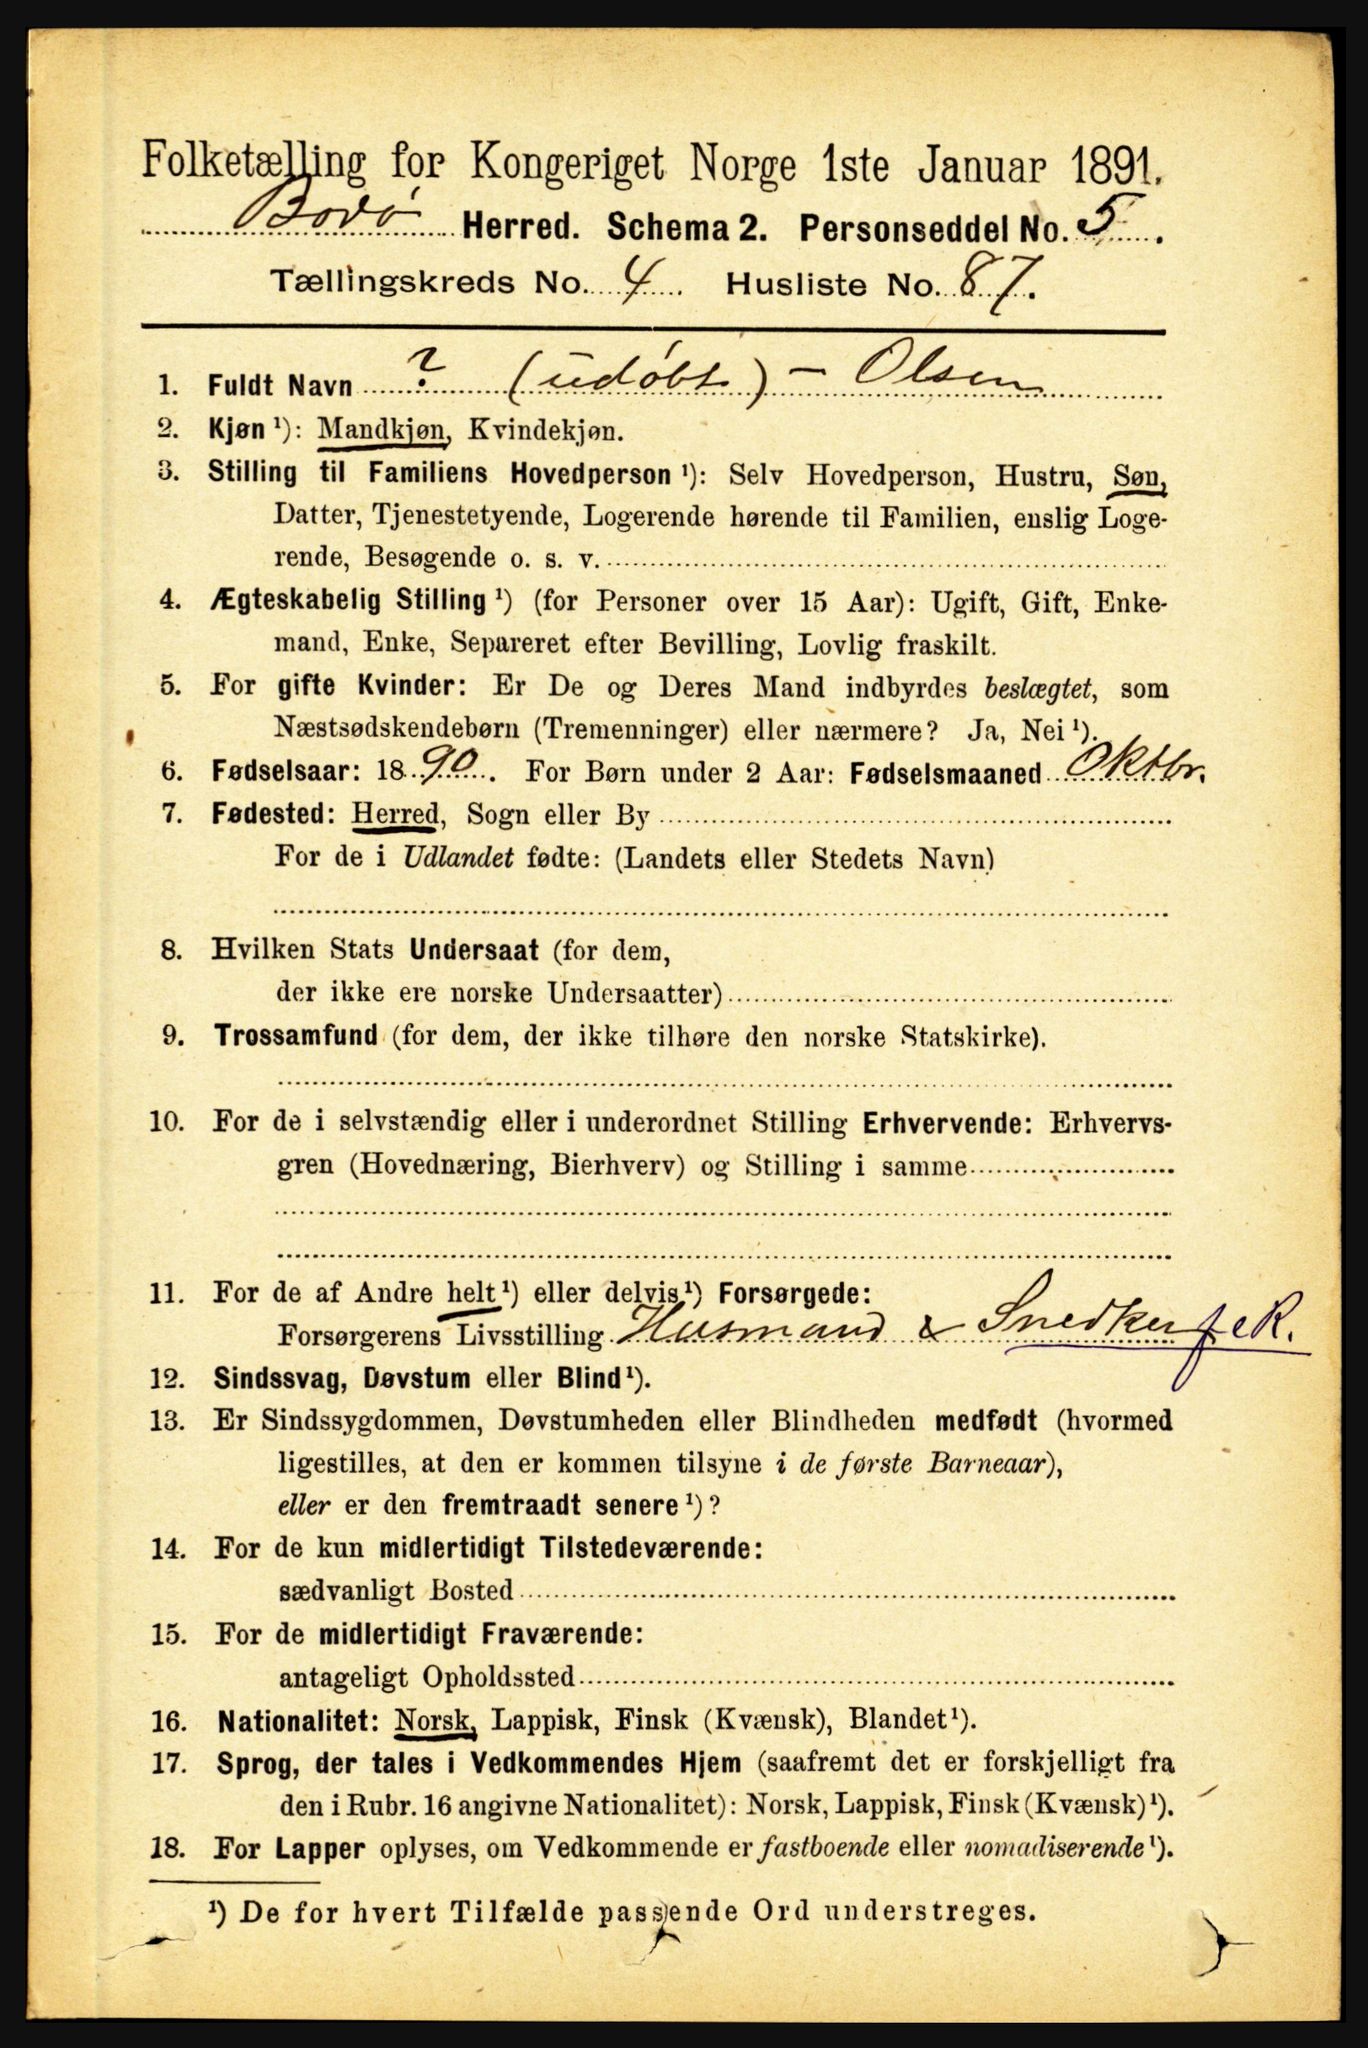 Folketælling for Kongeriget Norge 1ste Januar 1891.
Bodø Herred. Schema 2. Personseddel No. 5.
Tællingskreds No. 4. Husliste No. 87.
1. Fuldt Navn ? (udøbt) - Olsen
2. Kjøn ¹): Mandkjøn, Kvindekjøn.
3. Stilling til Familiens Hovedperson ¹): Selv Hovedperson, Hustru, Søn,
Datter, Tjenestetyende, Logerende hørende til Familien, enslig Loge-
rende, Besøgende o. s. v.
4. Ægteskabelig Stilling ¹) (for Personer over 15 Aar): Ugift, Gift, Enke-
mand, Enke, Separeret efter Bevilling, Lovlig fraskilt.
5. For gifte Kvinder: Er De og Deres Mand indbyrdes beslægtet, som
Næstsødskendebørn (Tremenninger) eller nærmere? Ja, Nei ¹).
6. Fødselsaar: 1890. For Børn under 2 Aar: Fødselsmaaned Oktbr.
7. Fødested: Herred, Sogn eller By
For de i Udlandet fødte: (Landets eller Stedets Navn)
8. Hvilken Stats Undersaat (for dem,
der ikke ere norske Undersaatter)
9. Trossamfund (for dem, der ikke tilhøre den norske Statskirke).
10. For de i selvstændig eller i underordnet Stilling Erhvervende: Erhvervs-
gren (Hovednæring, Bierhverv) og Stilling i samme
11. For de af Andre helt ¹) eller delvis ¹) Forsørgede:
Forsørgerens Livsstilling Husmand & Snedker f e R.
12. Sindssvag, Døvstum eller Blind ¹).
13. Er Sindssygdommen, Døvstumheden eller Blindheden medfødt (hvormed
ligestilles, at den er kommen tilsyne i de første Barneaar),
eller er den fremtraadt senere ¹)?
14. For de kun midlertidigt Tilstedeværende:
sædvanligt Bosted
15. For de midlertidigt Fraværende:
antageligt Opholdssted
16. Nationalitet: Norsk, Lappisk, Finsk (Kvænsk), Blandet ¹).
17. Sprog, der tales i Vedkommendes Hjem (saafremt det er forskjelligt fra
den i Rubr. 16 angivne Nationalitet): Norsk, Lappisk, Finsk (Kvænsk) ¹).
18. For Lapper oplyses, om Vedkommende er fastboende eller nomadiserende ¹).
¹) De for hvert Tilfælde passende Ord understreges.